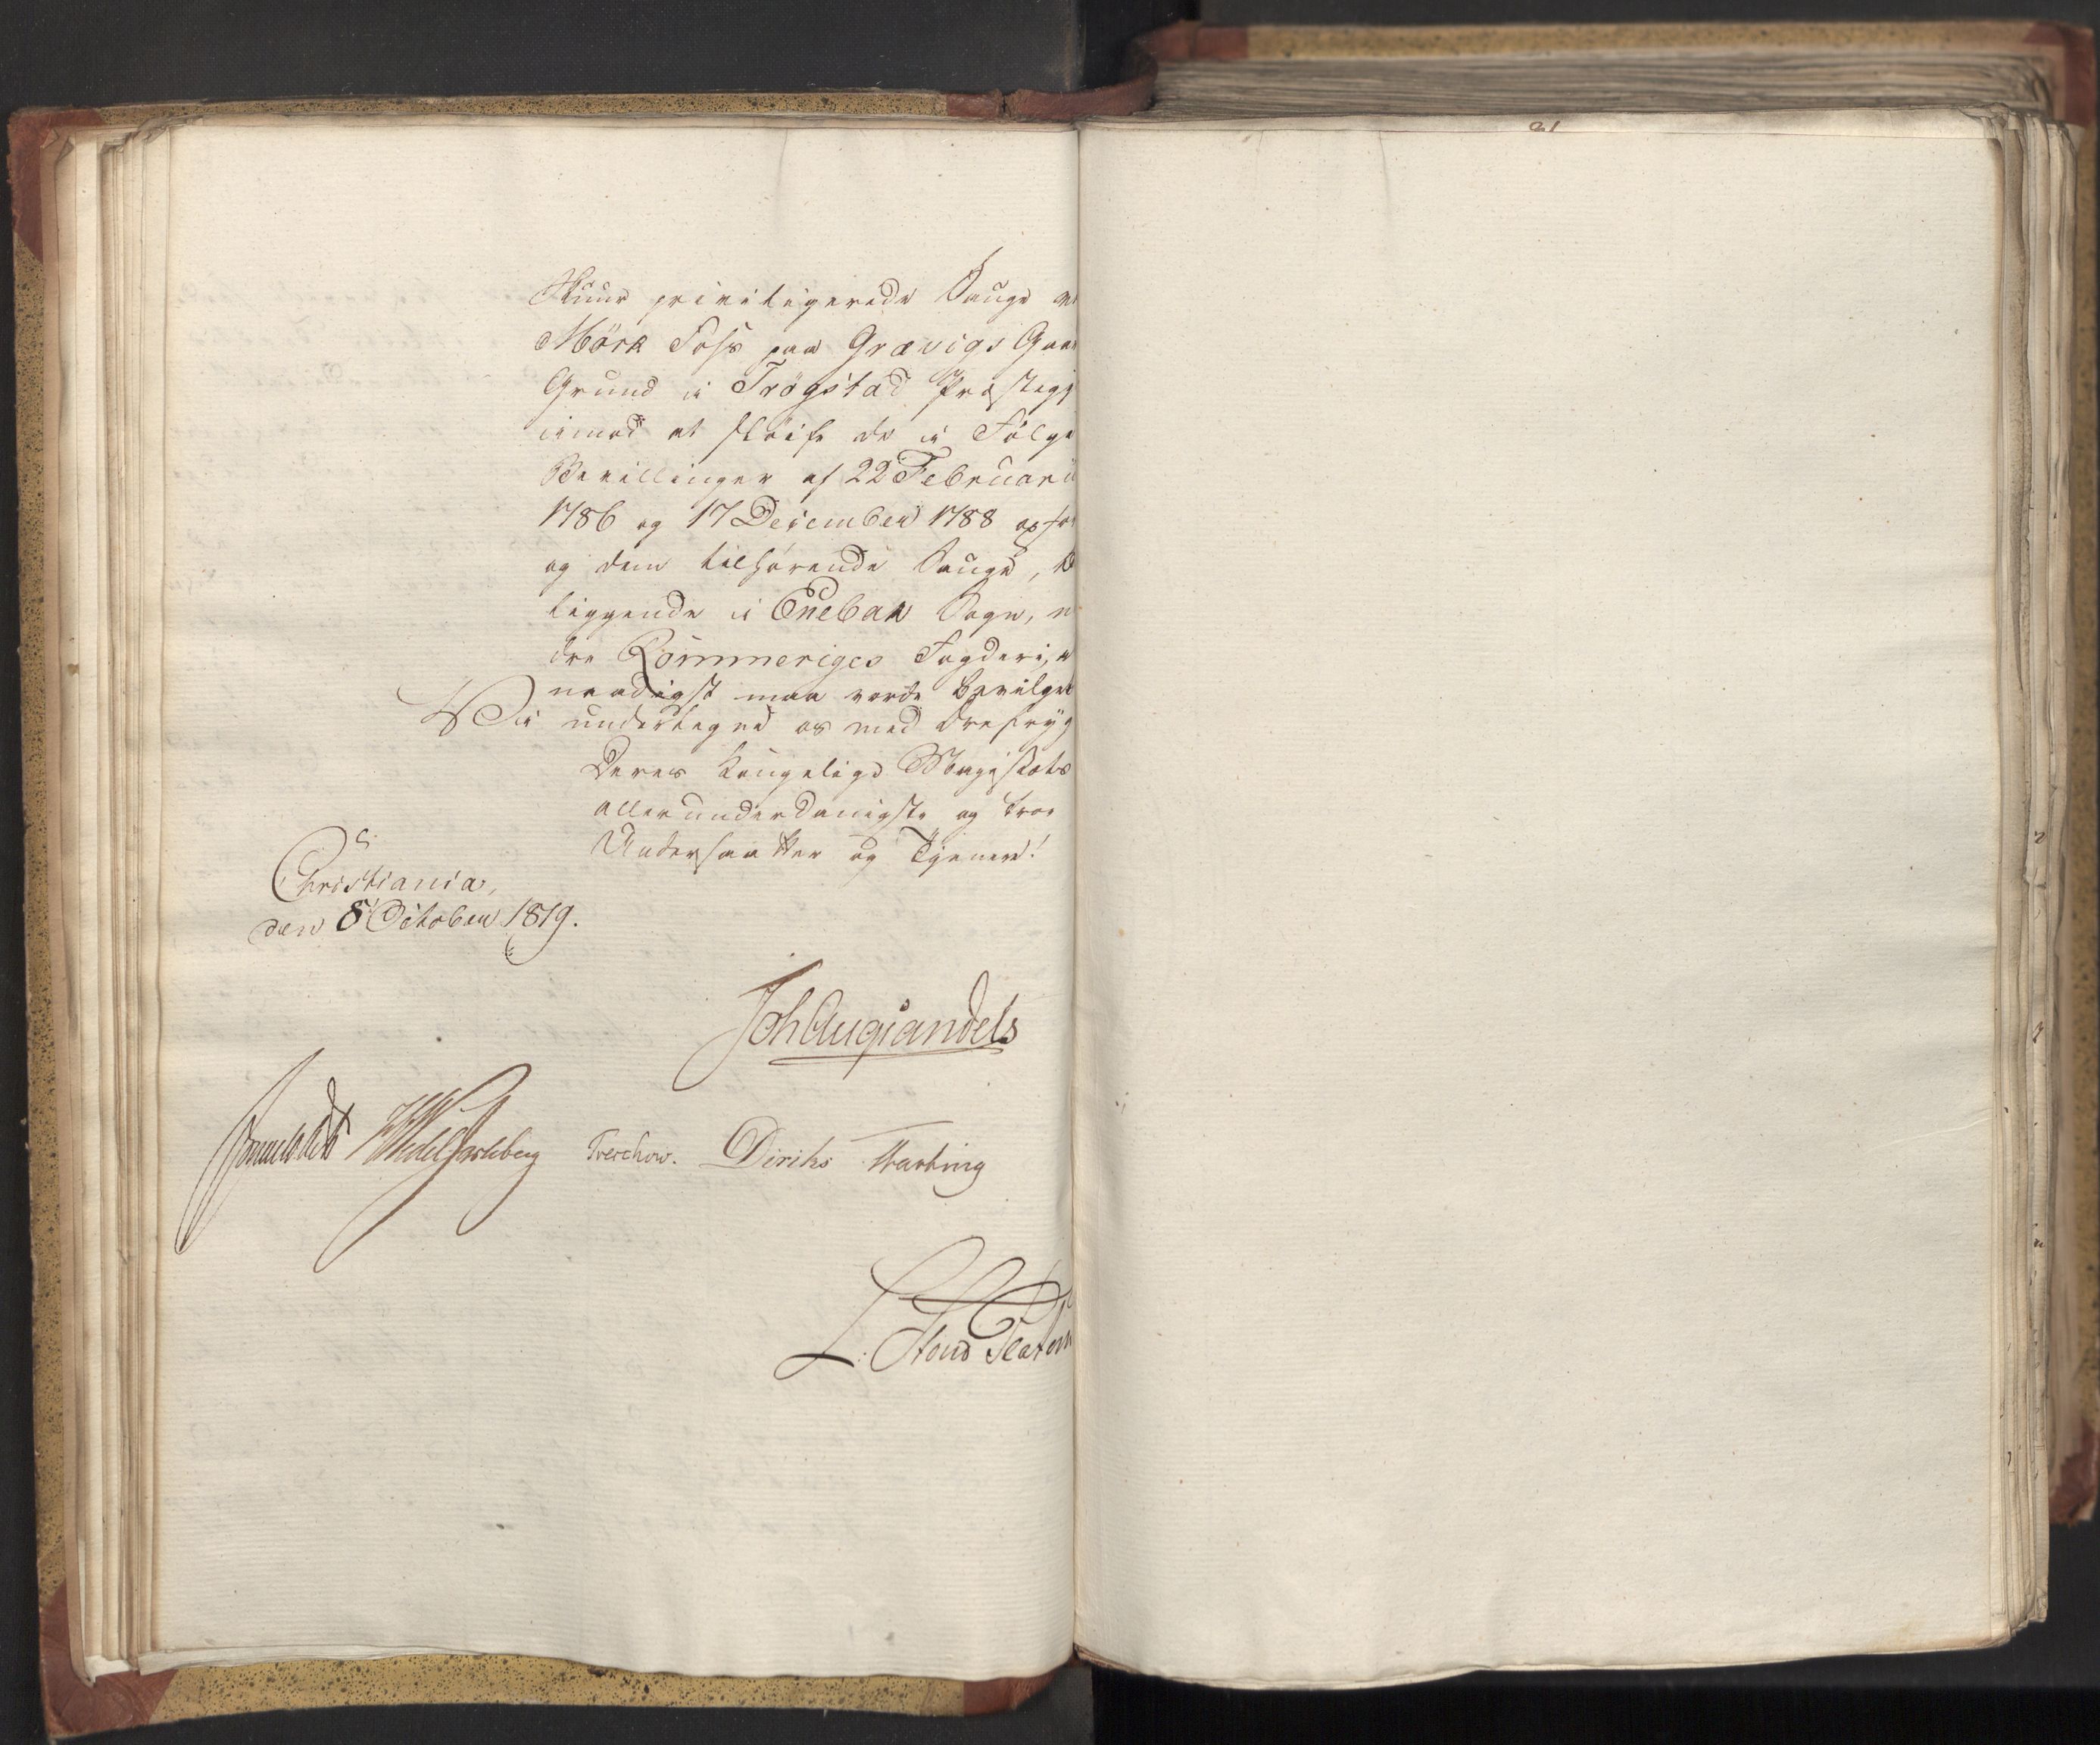 Huus priviligerede Sauge v
Mörk Foss paa Grævigs Gaar
Grund i Trögstad Præstegj
imod at slöife de i Følge
Bevillinger af 22 Februarii
1786 og 17 December 1788 opfør
og dem tilhørende Sauge,
liggende i Enebak Sogn, n
dre Rommeriges Fogderi, a
naadigst maa vorde bevilget
Vi undertegne os med dybefryg
Deres Kongelige Majestæts
allerunderdanigste og troe
Undersaatter og Tjenere!
Christiania,
den 8 October 1819.
Joh Aug Sandels
Sommerhielm HWedelJarlsberg Treschow. Diriks Hartvig
L. Stoud Platou
21